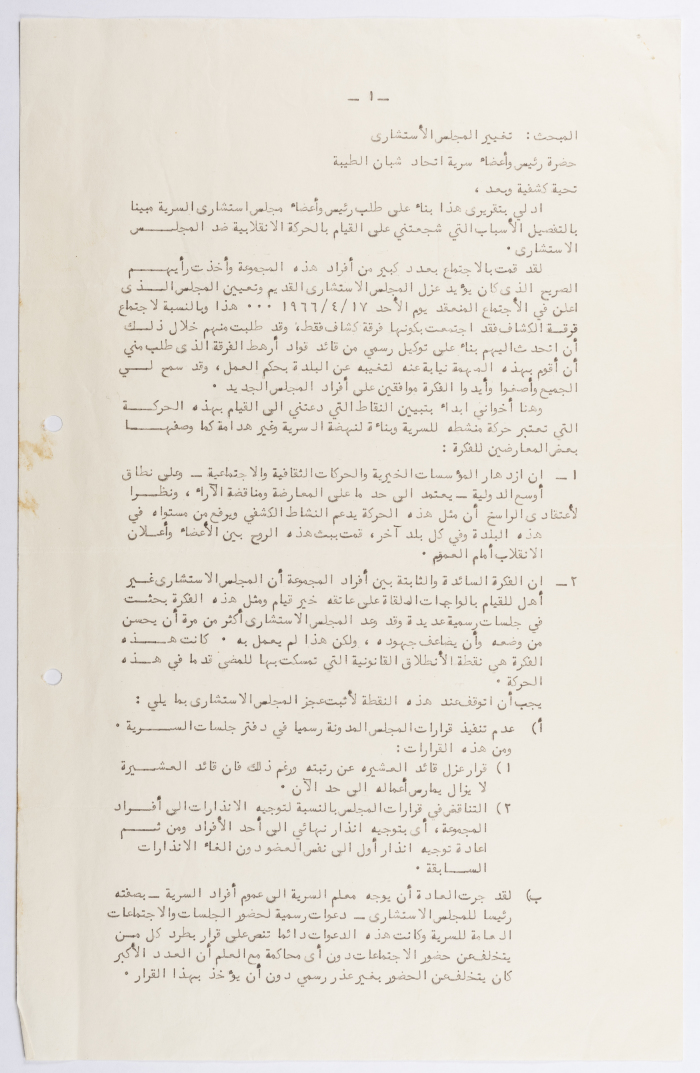 ــ ١ ــ
المبحث: تغيير المجلس الأستشارى
حضرة رئيس وأعضاء سرية اتحاد شبان الطيبة
تحية كشفية وبعد ،
ادلي بتقريرى هذا بناء على طلب رئيس وأعضاء مجلس استشارى السرية مبينا
بالتفصيل الأسباب التي شجعتني على القيام بالحركة الانقلابية ضد المجلس
الاستشارى .
لقد قمت بالاجتماع بعدد كبير من أفراد هذه المجموعة وأخذت رأيهم
الصريح الذى كان يؤيد عزل المجلس الاستشارى القديم وتعيين المجلس الذى
اعلن في الأجتماع المنعقد يوم الأحد ١٩٦٦/٤/١٧ ... هذا وبالنسبة لاجتماع
فرقة الكشاف فقد اجتمعت بكونها فرقة كشاف فقط، وقد طلبت منهم خلال ذلك
أن اتحدث اليهم بناء على توكيل رسمي من قائد فواد أرهط الفرقة الذى طلب مني
أن أقوم بهذه المهمة نيابة عنه لتغيبه عن البلدة بحكم العمل، وقد سمح لي
الجميع وأصغوا وأيدوا الفكرة موافقين على أفراد المجلس الجديد .
وهنا أخواني ابداء بتبيين النقاط التي دعتني الى القيام بهذه الحركة
التي تعتبر حركة منشطه للسرية وبناءة لنهضة السرية وغير هدامة كما وصفها
بعض المعارضين للفكرة :
١ ــ ان ازدهار المؤسسات الخيرية والحركات الثقافية والاجتماعية ــ وعلى نطاق
أوسع الدولية ــ يعتمد الى حد ما على المعارضة ومناقضة الآراء ، ونظرا
لأعتقادى الراسخ أن مثل هذه الحركة يدعم النشاط الكشفي ويرفع من مستواه في
هذه البلدة وفي كل بلد آخر، قمت ببث هذه الروح بين الأعضاء وأعلان
الانقلاب أمام العموم .
٢ ــ ان الفكرة السائدة والثابتة بين أفراد المجموعة أن المجلس الاستشارى غير
أهل للقيام بالواجبات الملقاة على عاتقه خير قيام ومثل هذه الفكرة بحثت
في جلسات رسمية عديدة وقد وعد المجلس الاستشارى أكثر من مرة أن يحسن
من وضعه وأن يضاعف جهوده ، ولكن هذا لم يعمل به . كانت هذه
الفكرة هي نقطة الأنطلاق القانونية التي تمسكت بها للمضى قدما في هذه
الحركة .
يجب أن اتوقف عند هذه النقطة لأثبت عجز المجلس الاستشارى بما يلي :
أ) عدم تنفيذ قرارات المجلس المدونة رسميا في دفتر جلسات السرية .
ومن هذه القرارات :
١) قرار عزل قائد العشيره عن رتبته ورغم ذلك فان قائد العشيرة
لا يزال يمارس أعماله الى حد الآن .
٢) التناقض في قرارات المجلس بالنسبة لتوجيه الانذارات الى أفراد
المجموعة ، أى بتوجيه انذار نهائي الى أحد الأفراد ومن ثم
اعادة توجيه انذار أول الى نفس العضو دون الغاء الانذارات
السابقة .
ب) لقد جرت العادة أن يوجه معلم السرية الى عموم أفراد السرية ــ بصفته
رئيسا للمجلس الاستشارى ــ دعوات رسمية لحضور الجلسات والاجتماعات
العامة للسرية وكانت هذه الدعوات دائما تنص على قرار بطرد كل من
يتخلف عن حضور الاجتماعات دون أى محاكمة مع العلم أن العدد الأكبر
كان يتخلف عن الحضور بغير عذر رسمي دون أن يؤخذ بهذا القرار .